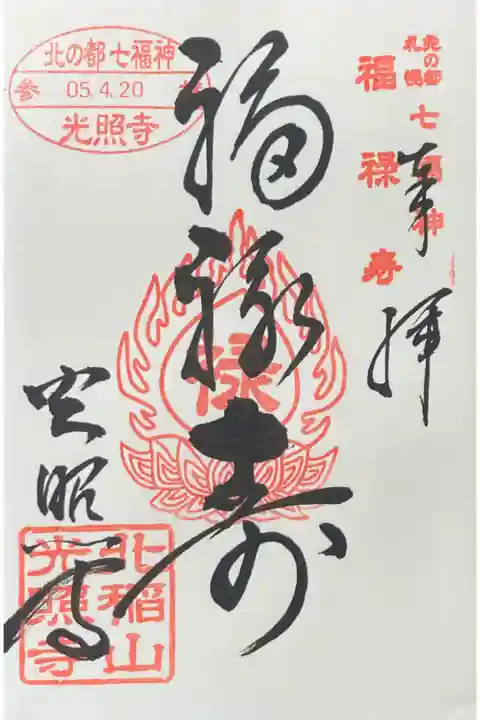 北の都
札幌
七福神
福禄寿
奉拝
福禄寿
禄
光照寺
北の都 七福神
参 05.4.20 拝
光照寺
北稲山
光照寺